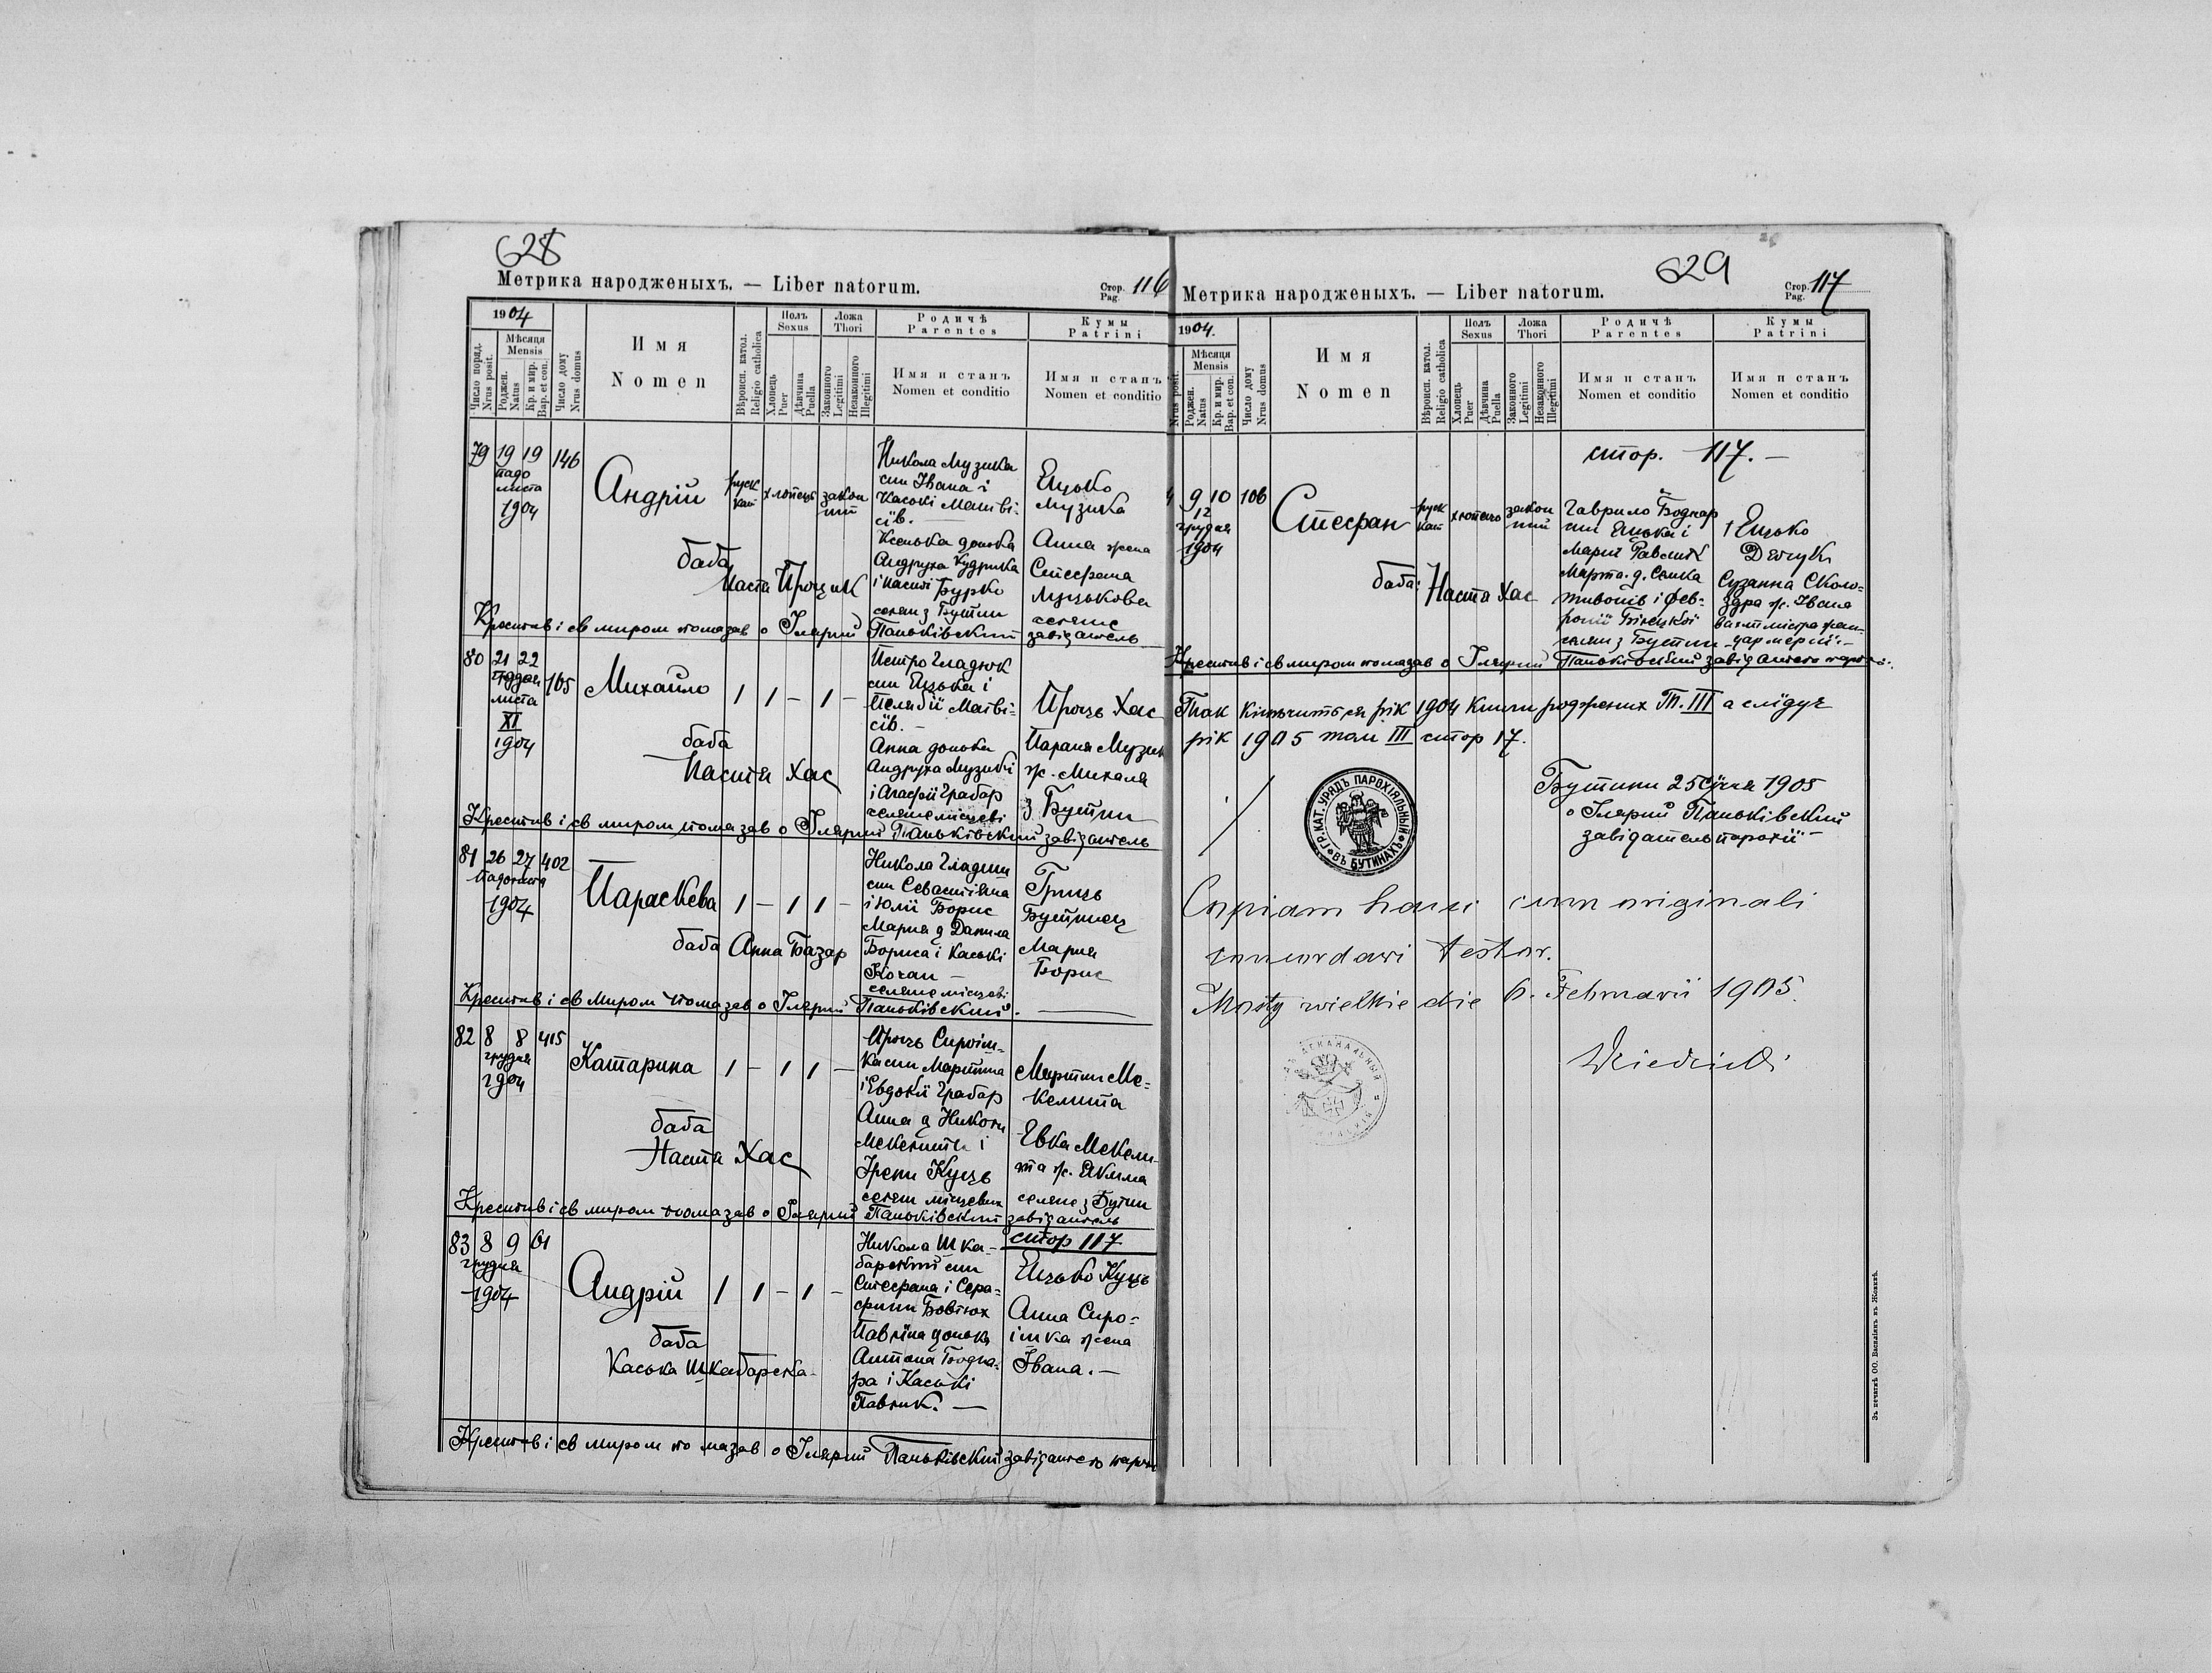 628
Метрика народженыхъ. — Liber natorum.
Стор. Pag. 116
1904
Число поряд. Nrus posit.
Мѣсяця Mensis
Роджен. Natus
Кр. и мир. Bap. et con.
Число дому Nrus domus
Имя
Nomen
Вѣроисп. катол. Religio catholica
Полъ Sexus
Хлопець Puer
Дѣвчина Puella
Ложа Thori
Законного Legitimi
Незаконного Illegitimi
Родичѣ Parentes
Имя и станъ
Nomen et conditio
Кумы Patrini
Имя и станъ
Nomen et conditio
79 19 19 146
падо
листа
1904
Андрій
руск кат хлопець закон ний
Никола Музика
син Івана і
Каські Матві-
їв. —
Ксенька донька
Андруха Кудрика
і Насті Бурко
селян з Бутин
Ецько
Музика
Анна жена
Стефана
Луцькова
селяне
баба
Настя Процик
Крестив і св миром помазав о Ілярий Паньківский завідатель
80 21 22 105
падол
листа
XI
1904
Михайло 1 1 — 1 —
Петро Гладюк
син Ецька і
Пелябії Матві-
їв. —
Анна донька
Андруха Музики
і Агафії Грабар
селяне місцеві
Проць Хас
Параня Музик
ж. Михаля
з Бутин
баба
Настя Хас
Крестив і св миром помазав о Ілярий Паньківский завідатель
81 26 27 402
Падолиста
1904
Параскева 1 — 1 1 —
Никола Гладиш
син Севастіяна
і Юлії Борис
Мария д Данила
Бориса і Каські
Кочан —
селяне місцеві
Гриць
Бутинец
Мария
Борис
баба Анна Базар
Крестив і св Миром помазав о Ілярий Паньківский. —
82 8 8 415
грудня
1904
Катарина 1 — 1 1 —
Проць Сироїш-
ка син Мартина
і Євдокії Грабар
Анна д Николи
Мекелити і
Ірени Куць
селян місцевих
Мартин Ме-
келита
Евка Мекели-
та ж. Якима
селяне з Бутин
баба
Настя Хас
Крестив і св миром помазав о Ілярий Паньківский завідатель
83 8 9 61
грудня
1904
Андрій 1 1 — 1 —
Никола Шка-
барский син
Стефана і Сера-
фини Бовтюх
Павліна донька
Антона Бодна-
ра і Каські
Павлик. —
стор 117
Ецько Куць
Анна Сиро-
їшка жена
Івана. —
баба
Каська Шкабарска
Крестив і св миром помазав о Ілярий Паньківский завідатель
629
Метрика народженыхъ. — Liber natorum.
Стор. Pag. 117
1904.
Nrus posit.
Мѣсяця Mensis
Роджен. Natus
Кр. и мир. Bap. et con.
Число дому Nrus domus
Имя
Nomen
Вѣроисп. катол. Religio catholica
Полъ Sexus
Хлопець Puer
Дѣвчина Puella
Ложа Thori
Законного Legitimi
Незаконного Illegitimi
Родичѣ Parentes
Имя и станъ
Nomen et conditio
Кумы Patrini
Имя и станъ
Nomen et conditio
стор. 117. —
4 9 10 106
12
грудня
1904
Стефан
руск кат хлопець закон ний
Гаврило Боднар
син Ецька і
Мариї Равлик
Марта. д. Сенка
і Фев-
ронії Білецкої
селян з Бутин
† Ецько
Демчук
Сузанна Сколо-
здра ж. Івана
вахтмістра жан-
дармерії. —
баба: Настя Хас
Крестив і св миром помазав о Ілярий Паньківский завідатель
Так кінчиться рік 1904 книги роджених Т. III а слідує
рік 1905 том III стор 17.
Бутини 25 Січня 1905
о Ілярий Паньківский
завідатель парохії —
ГР. КАТ. УРЯДЪ ПАРОХІЯЛЬНЫЙ ВЪ БУТИНАХЪ
Copiam hanc cum originali
concordari testor.
Mosty wielkie die 6. Februarii 1905.
Зъ печатнѣ ОО. Василіянъ въ Жовквѣ.